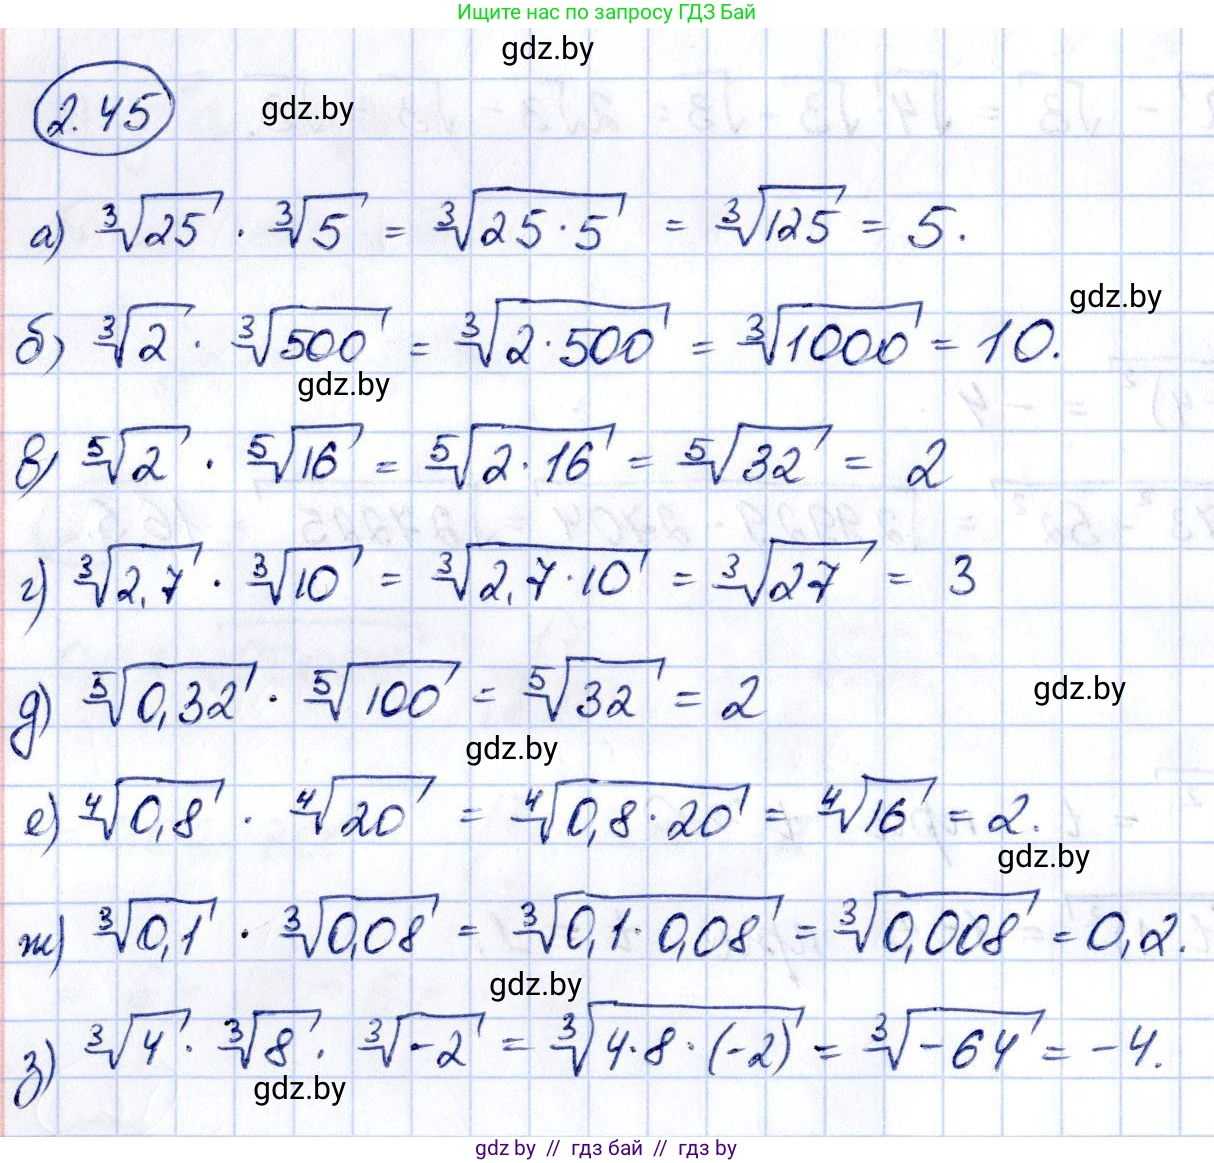 Ищите нас по запросу ГДЗ Бай
gdz.by
2.45 gdz.by
а) ∛25 · ∛5 = ∛(25·5) = ∛125 = 5.
gdz.by
б) ∛2 · ∛500 = ∛(2·500) = ∛1000 = 10.
gdz.by
в) ⁵√2 · ⁵√16 = ⁵√(2·16) = ⁵√32 = 2
г) ∛2,7 · ∛10 = ∛(2,7·10) = ∛27 = 3
д) ⁵√0,32 · ⁵√100 = ⁵√32 = 2
gdz.by
gdz.by
е) ∜0,8 · ∜20 = ∜(0,8·20) = ∜16 = 2.
gdz.by
ж) ∛0,1 · ∛0,08 = ∛(0,1·0,08) = ∛0,008 = 0,2.
gdz.by
з) ∛4 · ∛8 · ∛-2 = ∛(4·8·(-2)) = ∛-64 = -4.
gdz.by
gdz by // гдз бай // гдз by